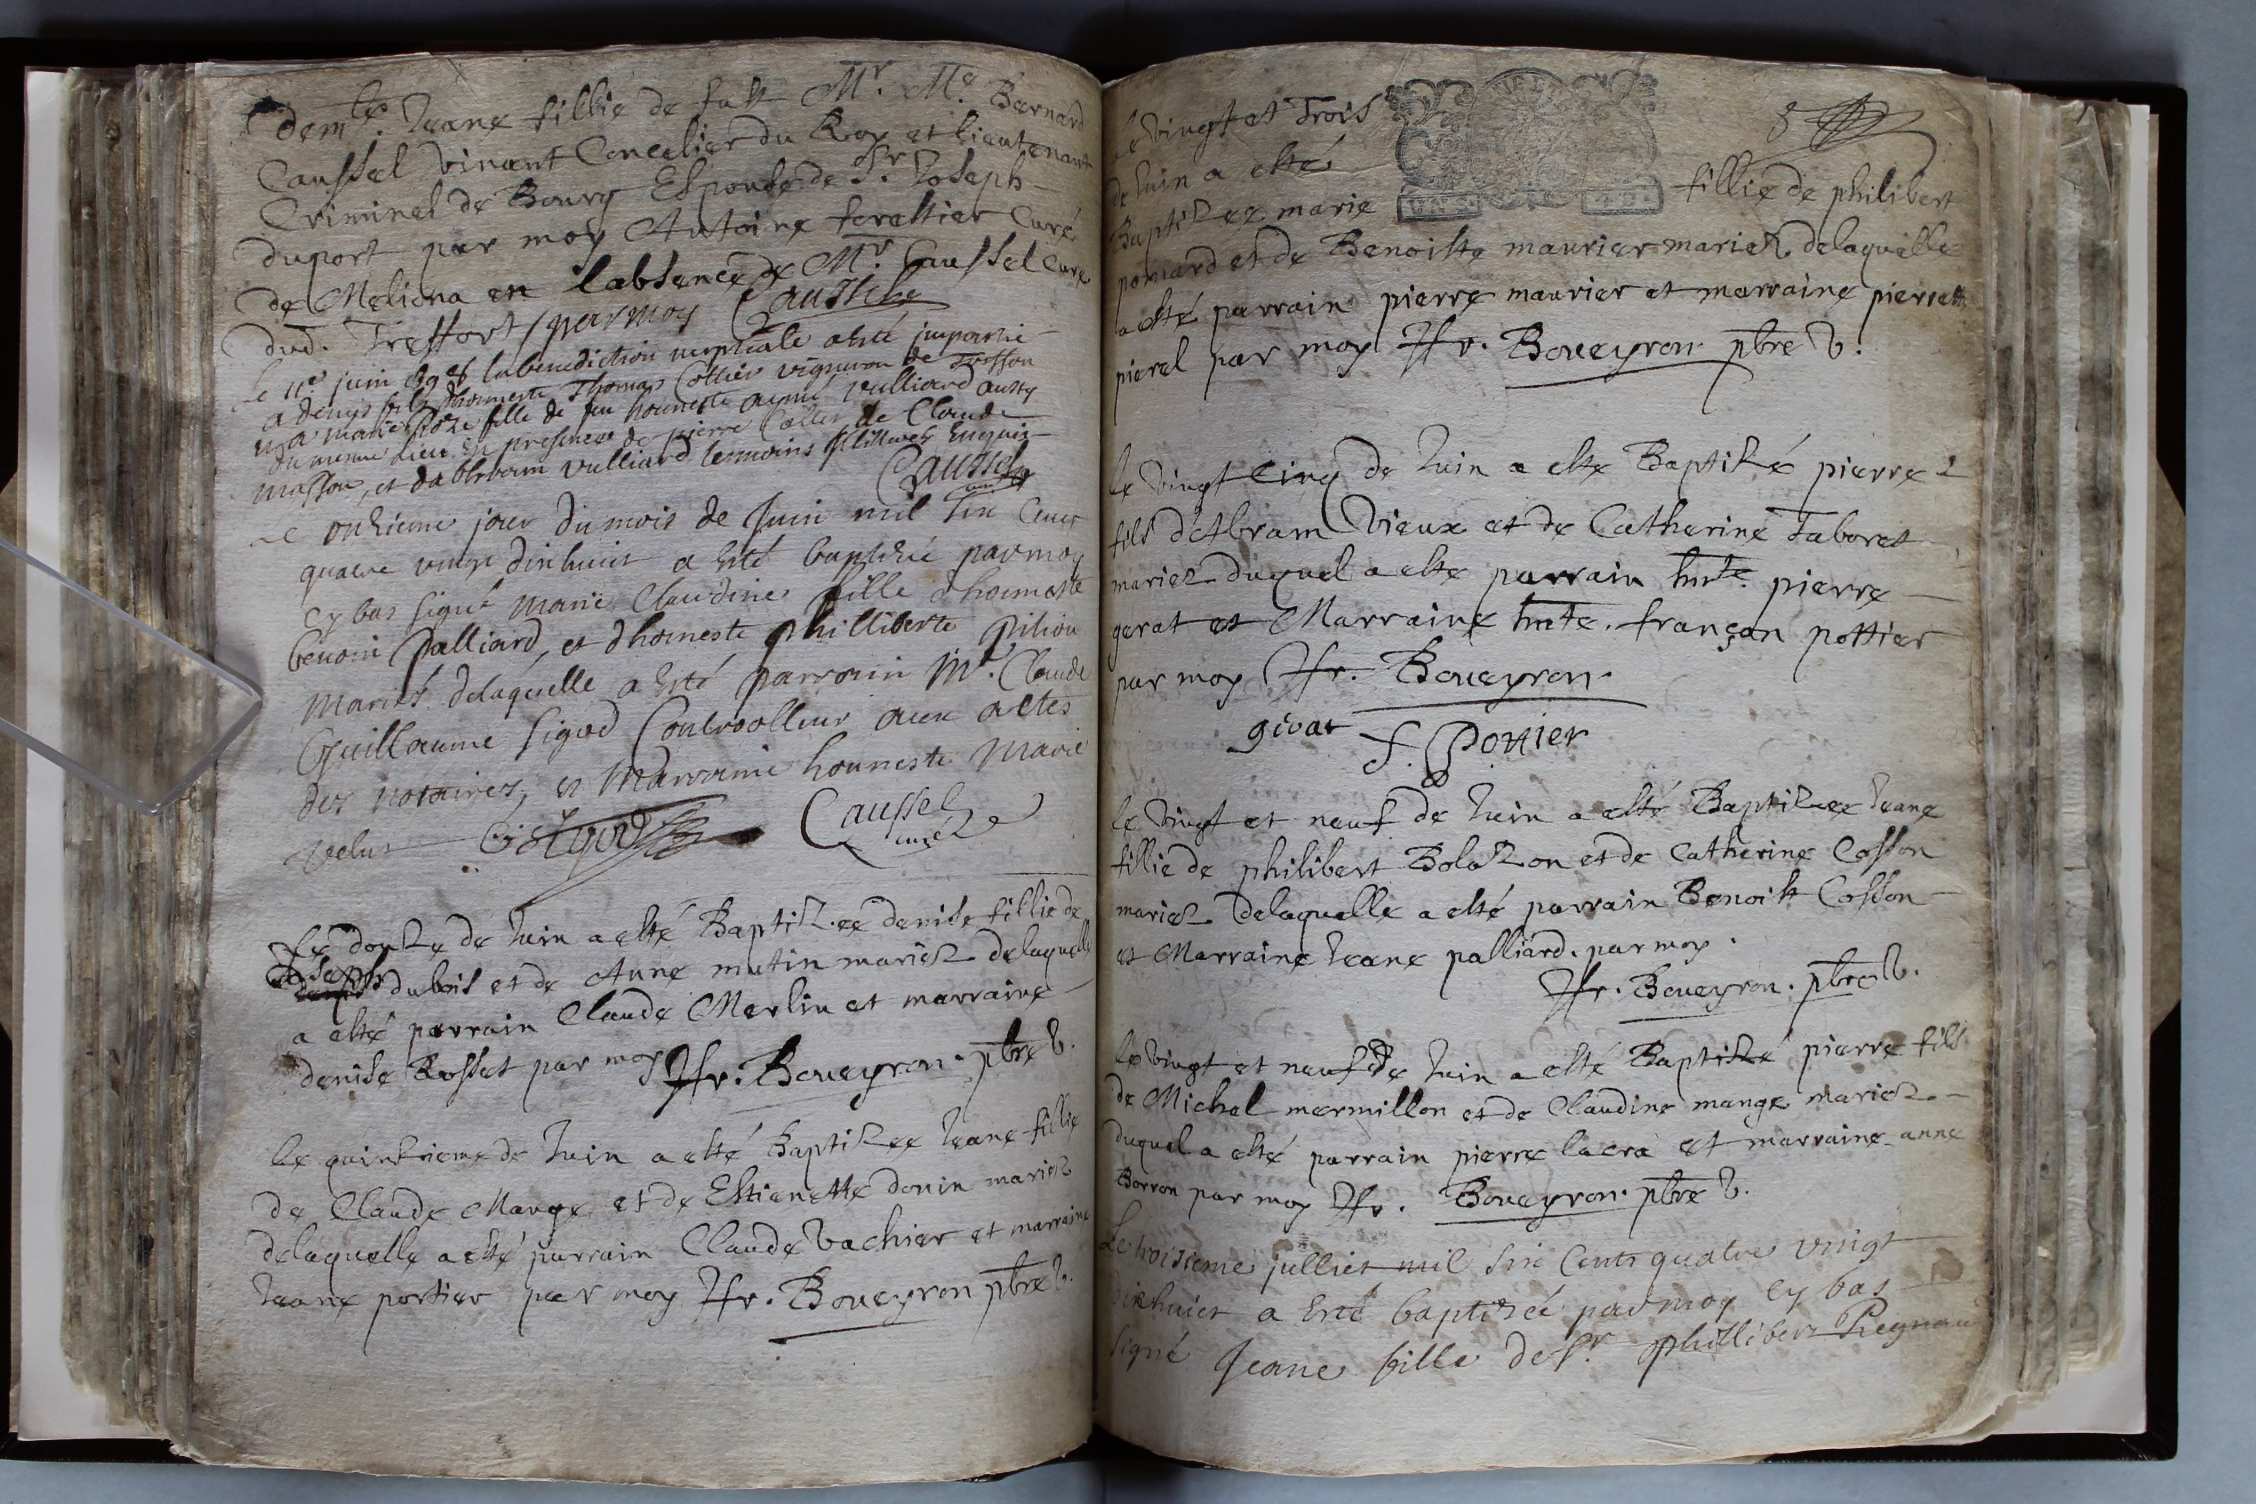 demle. Jeane fillie de fust Mr. Me. Bernard
Caussel vivant Concelier du Roy et lieutenant
Criminel de Bourg Espouse de Sr. Joseph
duport par moy Antoine forestier Curé
de Meliona en labsence de Mr. Caussel Cure
dud. Treffort / par moy Caussel
Le 11e juin la benediction nuptiale a esté impartie
a denys fils dhonneste Thomas Cottier vigneron de
et a marie fille de feu honneste aymé vulliard aussy
du mesme lieu en presence de pierre Cottier de Claude
masson, et dabbraam vulliard tesmoins
Caussel
curé
Le onzieme jour du mois de Juin mil six Cent
quatre vingt dixhuict a esté baptizée par moy
cy bas signé marie Claudine fille dhonneste
benoit palliard, et dhonneste philliberte pition
mariés delaquelle a esté parrain Mr. Claude
Guillaume Sigod Controolleur aux actes
des notaires, et Marraine honneste Marie
velut GSigod Caussel
curé
Le douze de Juin a esté Baptizee denise fillie de
Joseph dubois et de Anne mutin mariez delaquelle
a esté parrain Claude Merlin et marraine
denise Rosset par moy Ffr. Boueyron. pbre V.
Le quinzieme de Juin a esté Baptizee Jeane fillie
de Claude Mange et de Estienette donin mariez
delaquelle a esté parrain Claude Vachier et marraine
Jeane portier par moy Ffr. Boueyron pbre V.
8
Le vingt et Trois
de Juin a esté
Baptizee marie fillie de philibert
pomard et de Benoiste maurier mariez delaquelle
a esté parrain pierre maurier et marraine pierrette
pierel par moy Ffr. Boueyron pbre V.
Le vingt Cinq de Juin a este Baptizé pierre
fils dAbram Vieux et de Catherine Taboret
mariez duquel a este parrain hnte. pierre
gerat et Marraine hnte. françon pottier
par moy Ffr. Boueyron.
girat f. Pottier
Le vingt et neuf de Juin a esté Baptizee Jeane
fillie de philibert Bolazon et de Catherine Cosson
mariez delaquelle a esté parrain Benoist Cosson
et Marraine Jeane palliard. par moy.
Ffr. Boueyron. pbre V.
Le vingt et neuf de Juin a esté Baptizé pierre fils
de Michel mermillon et de Claudine mange mariez
duquel a esté parrain pierre lacra et marraine anne
Borron par moy Ffr. Boueyron. pbre V.
Le troisieme jullict mil six Cents quatre vingt
dixhuict a esté baptizée par moy cy bas
signé Jeane fille de Sr. phillibert Reynaud